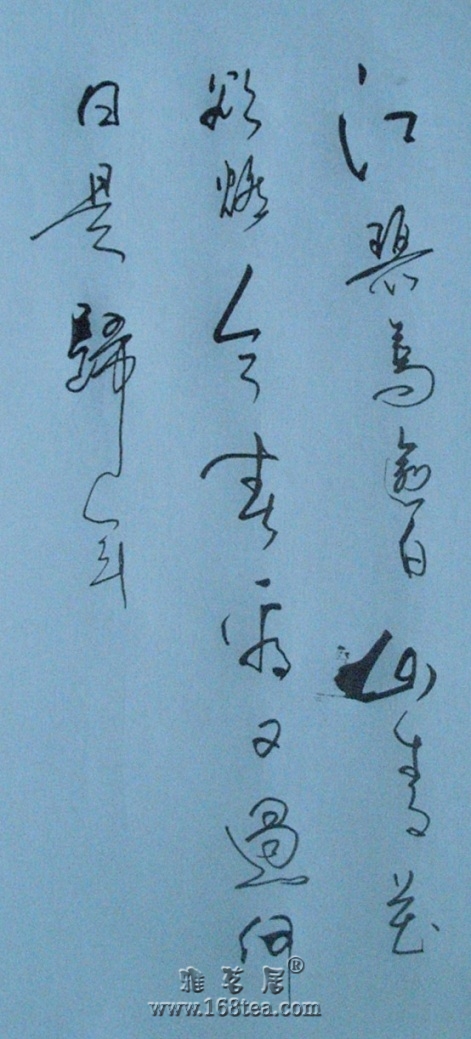 江碧鳥逾白山青花
欲燃今春看又過何
日是歸年
雅茗居®
www.168tea.com